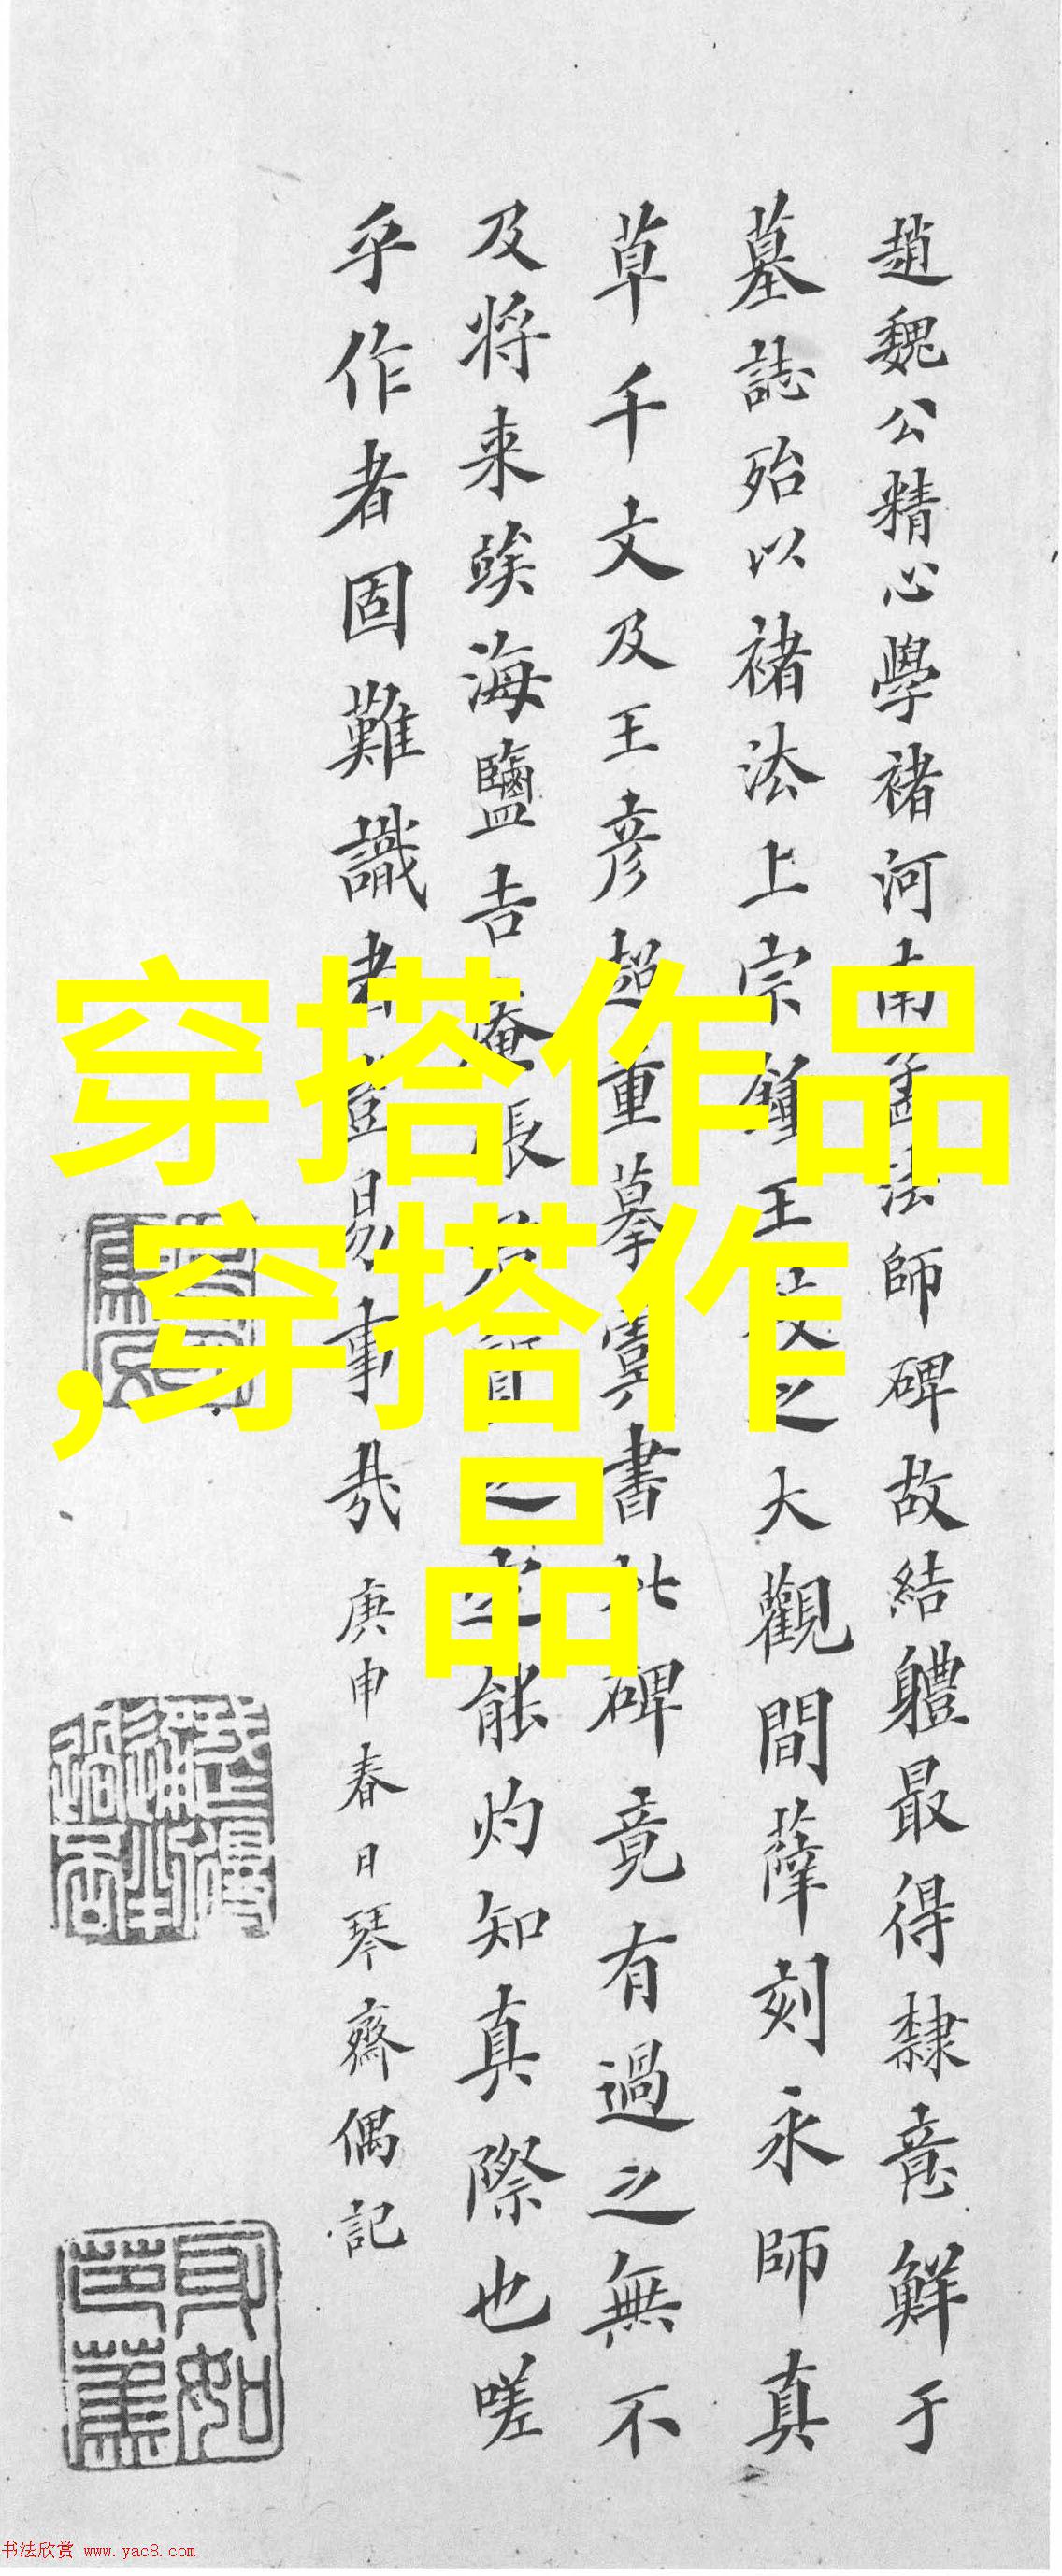 趙魏公精心學褚河南孟法師碑故結軆最得隸意鮮于
墓誌殆以褚法上宗鍾王故之大觀間薛刻永師真
草千文及王彦超重摹虞書此碑竟有過之無不
及将来竢海鹽吉庵張君質之定能灼知真際也嗟
乎作者固難識者豈易事哉庚申春日琴齋偶記
穿搭作品
,穿搭作
品
书法欣赏 www.yac8.com